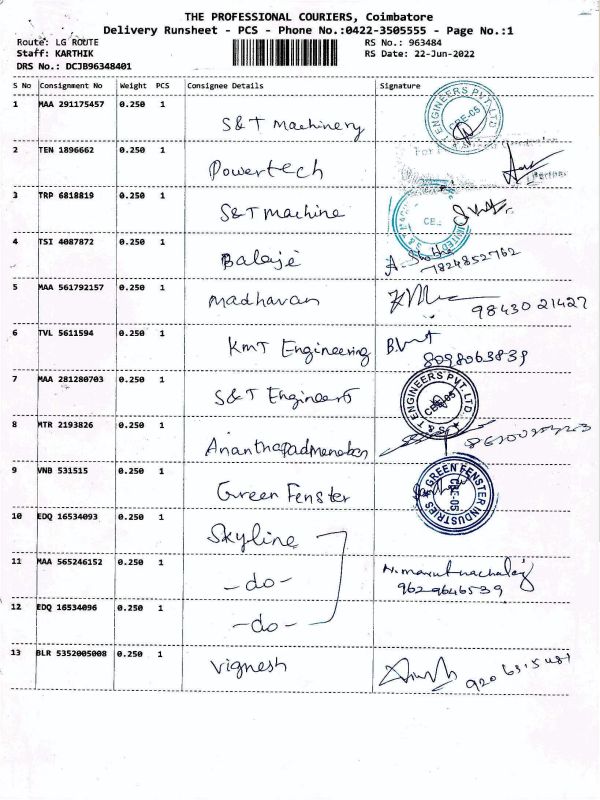 THE PROFESSIONAL COURIERS, Coimbatore
Delivery Runsheet - PCS - Phone No.:0422-3505555 - Page No.:1
Route: LG ROUTE RS No.: 963484
Staff: KARTHIK RS Date: 22-Jun-2022
DRS No.: DCJB96348401
S No Consignment No Weight PCS Consignee Details Signature
1 MAA 291175457 0.250 1 S&T Machinery
T ENGINEERS PVT.LTD. CBE-05
2 TEN 1896662 0.250 1 Powertech
For
Partner
3 TRP 6818819 0.250 1 S&T Machine
4 TSI 4087872 0.250 1 Balaje A. 7824852762
5 MAA 561792157 0.250 1 Madhavan 98430 21427
6 TVL 5611594 0.250 1 KMT Engineering 8098063839
7 MAA 281280703 0.250 1 S&T Engineers
S & T ENGINEERS PVT. LTD. CBE-05
8 MTR 2193826 0.250 1 Ananthapadmanaban
9 VNB 531515 0.250 1 Green Fenster
GREEN FENSTER INDUSTRIES CBE-05
10 EDQ 16534093 0.250 1 Skyline
11 MAA 565246152 0.250 1 -do- 9629646539
12 EDQ 16534096 0.250 1 -do-
13 BLR 5352005008 0.250 1 Vignesh